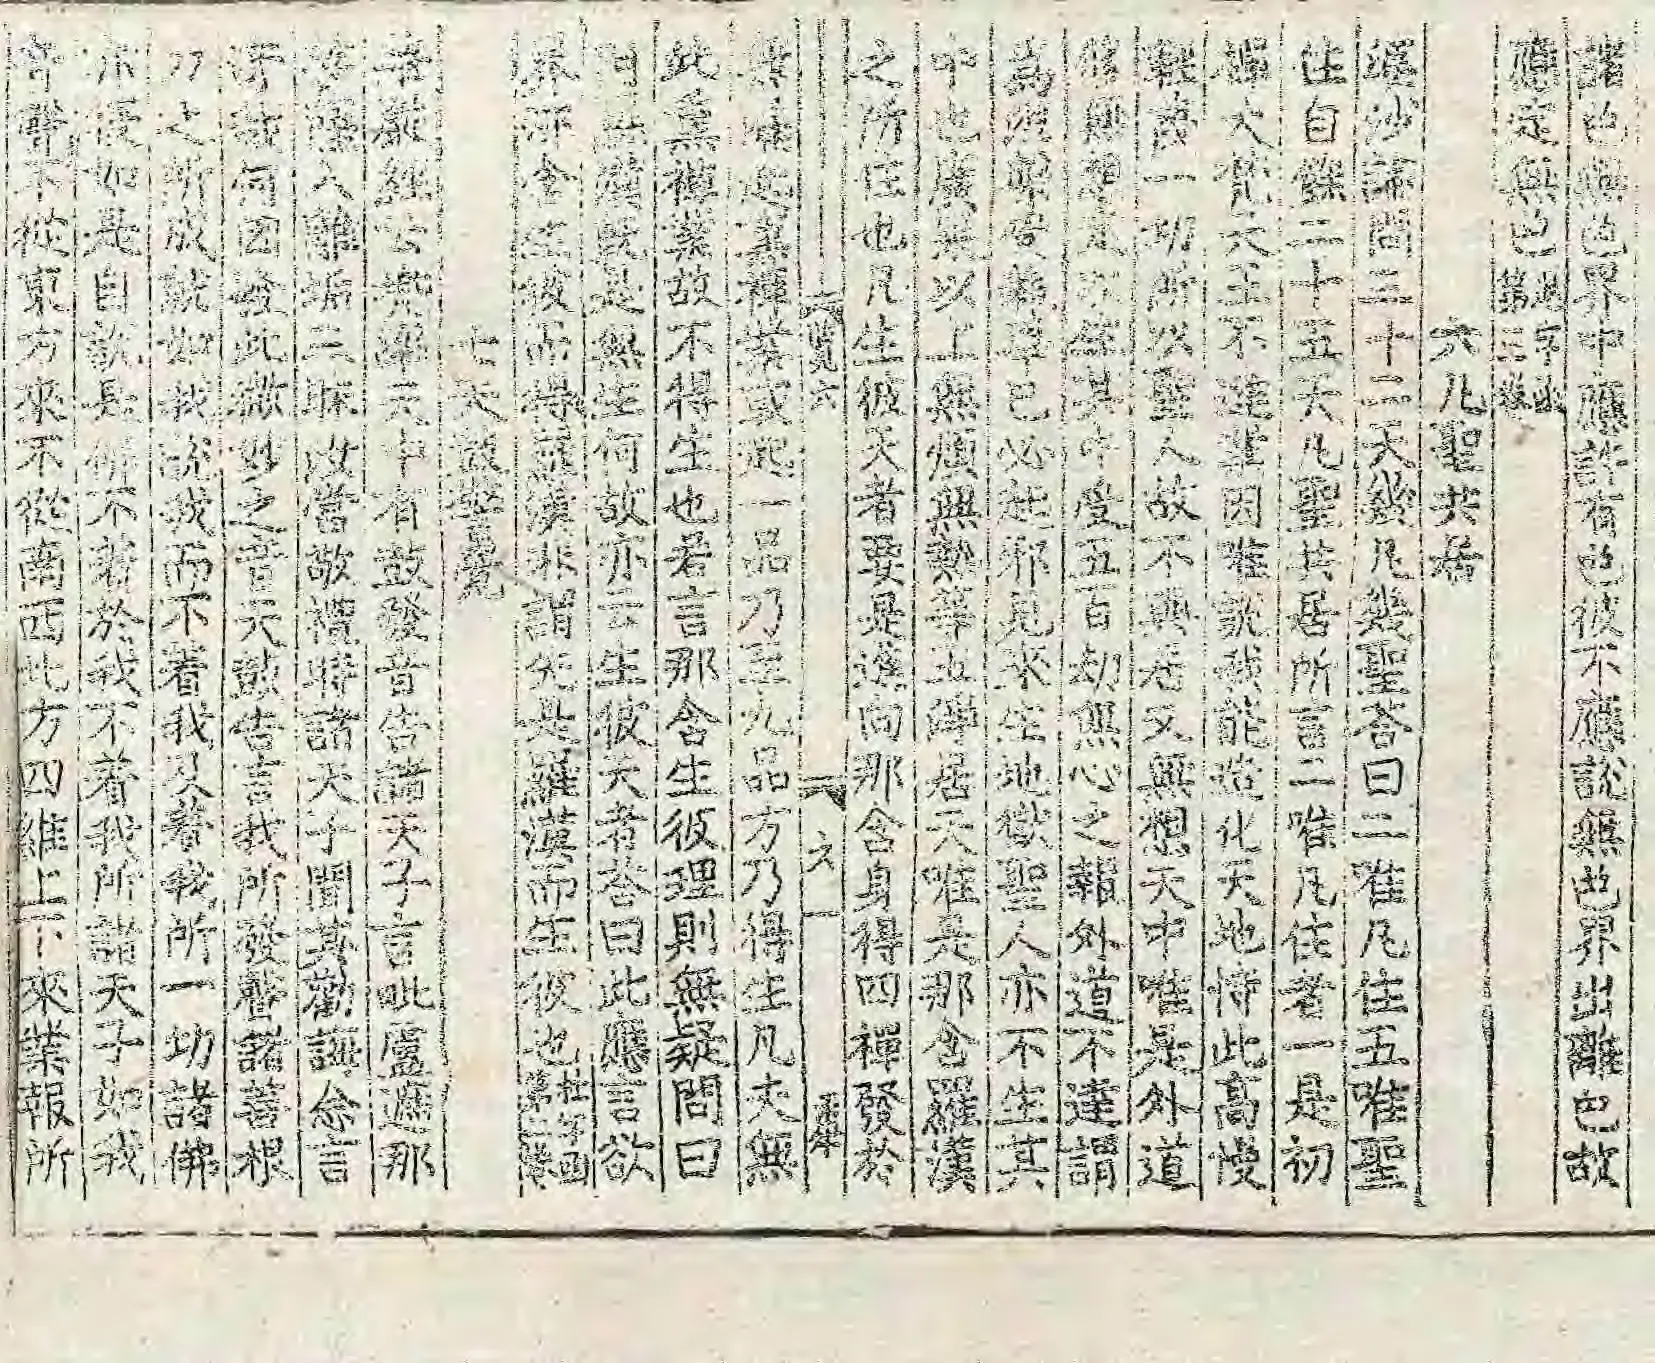 諸色想色界中應許有色彼不應說無色界出離色故
應定無色
六凡聖共居
婆沙論問三十二天幾凡幾聖答曰二唯凡住五唯聖
住自餘二十五天凡聖共居所言二唯凡住者一是初
禪大梵天王不達業因唯說我能造化天地恃此高慢
輕蔑一切所以聖人故不與居又無想天中唯是外道
修無想定以生其中受五百劫無心之報外道不達謂
為涅槃受報畢已必起邪見來生地獄聖人亦不生其
中也廣果以上無煩無熱等五淨居天唯是那含羅漢
之所住也凡生彼天者要是進向那含身得四禪發於
六覽六 六 一
無漏起熏禪業或起一品乃至九品方乃得生凡夫無
此熏禪業故不得生也若言那含生彼理則無疑問曰
羅漢既是無生何故亦云生彼天者荅曰此應言欲
界那含生彼而得羅漢非謂先是羅漢而生彼也
七天鼓警覺
華嚴經云兜率天中有鼓發音告諸天子言毗盧遮那
菩薩入離垢三昧汝當敬禮時諸天子聞其勸誨念言
奇哉何因發此微妙之音天鼓告言我所發聲諸善根
力之所成就如我說我而不着我及著我所一切諸佛
亦復如是自說是佛不着於我不着我所諸天子如我
音聲不從東方來不從南西北方四維上下來業報所